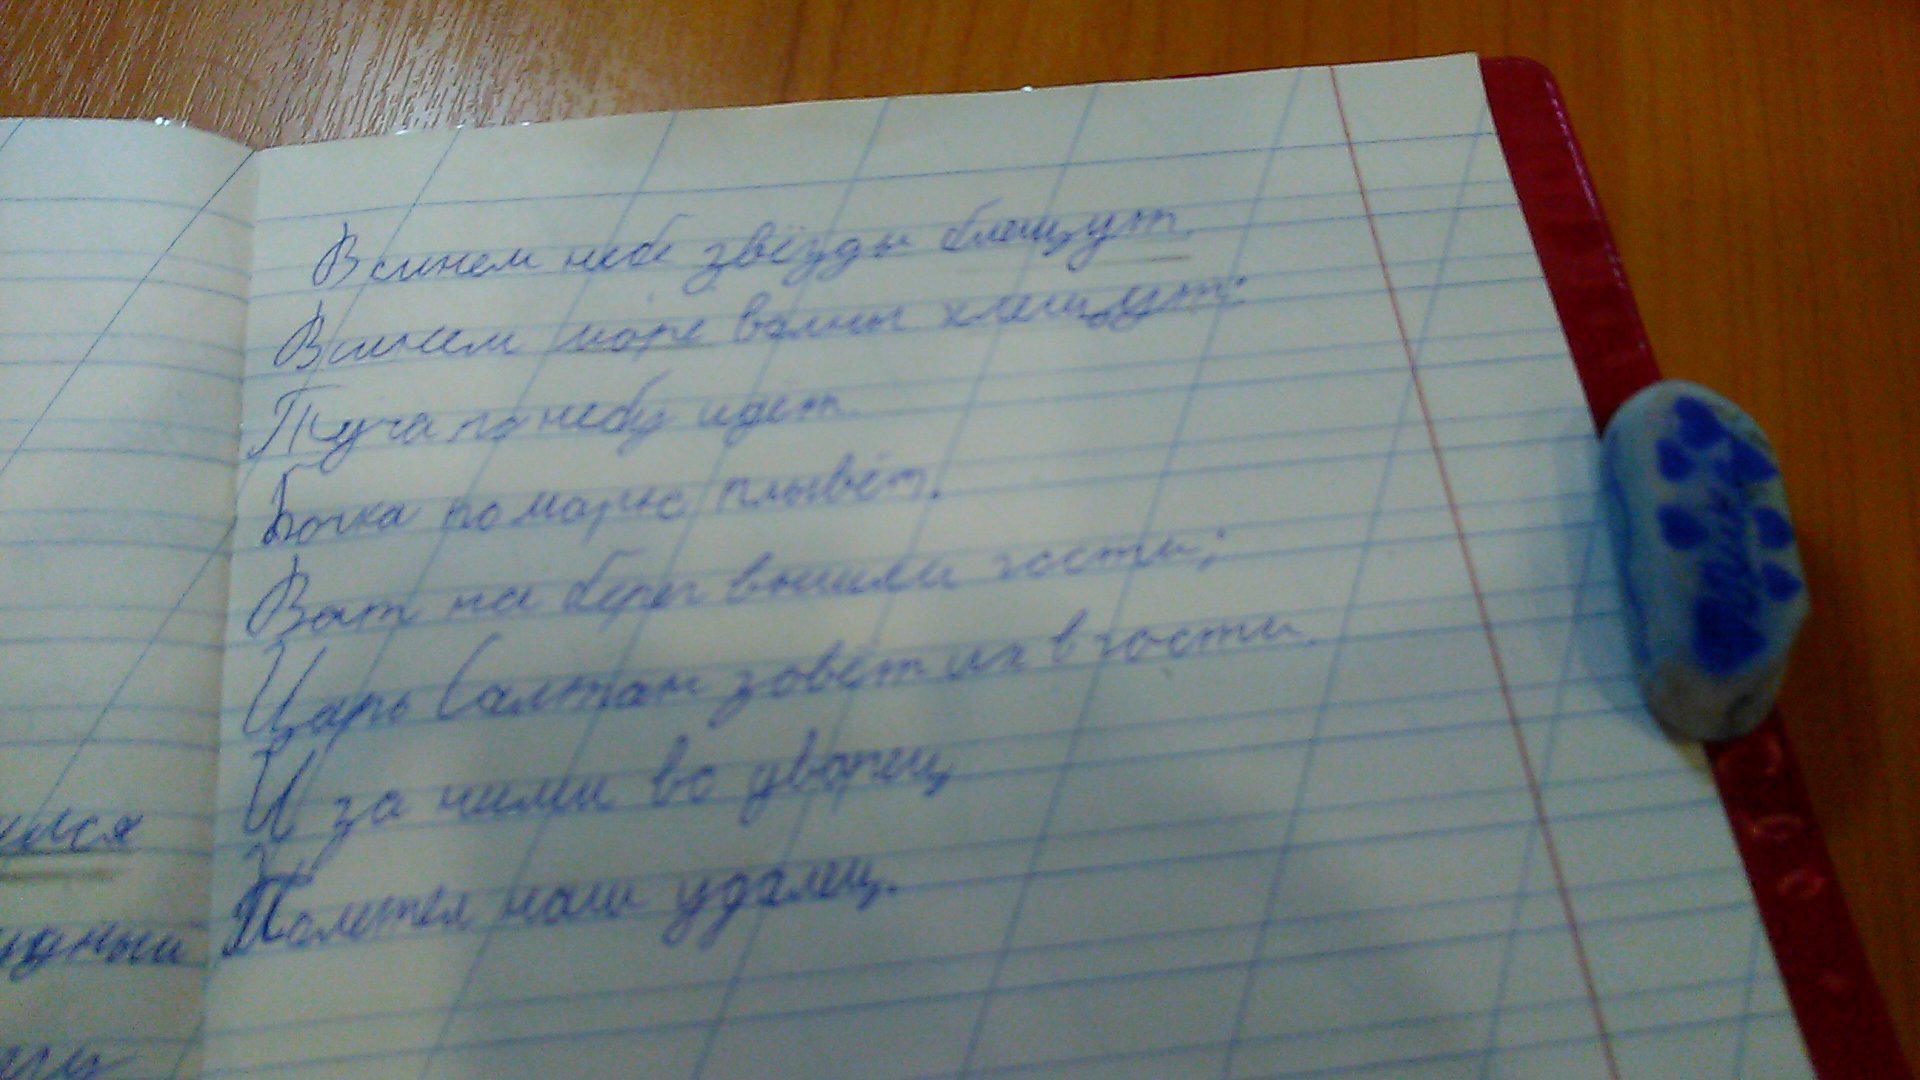 В синем небе звёзды блещут.
В синем море волны хлещут:
Туча по небу идёт.
Бочка по морю плывёт.
Вот на берег вышли гости;
Царь Салтан зовёт их в гости.
И за ними во дворец
Полетел наш удалец.